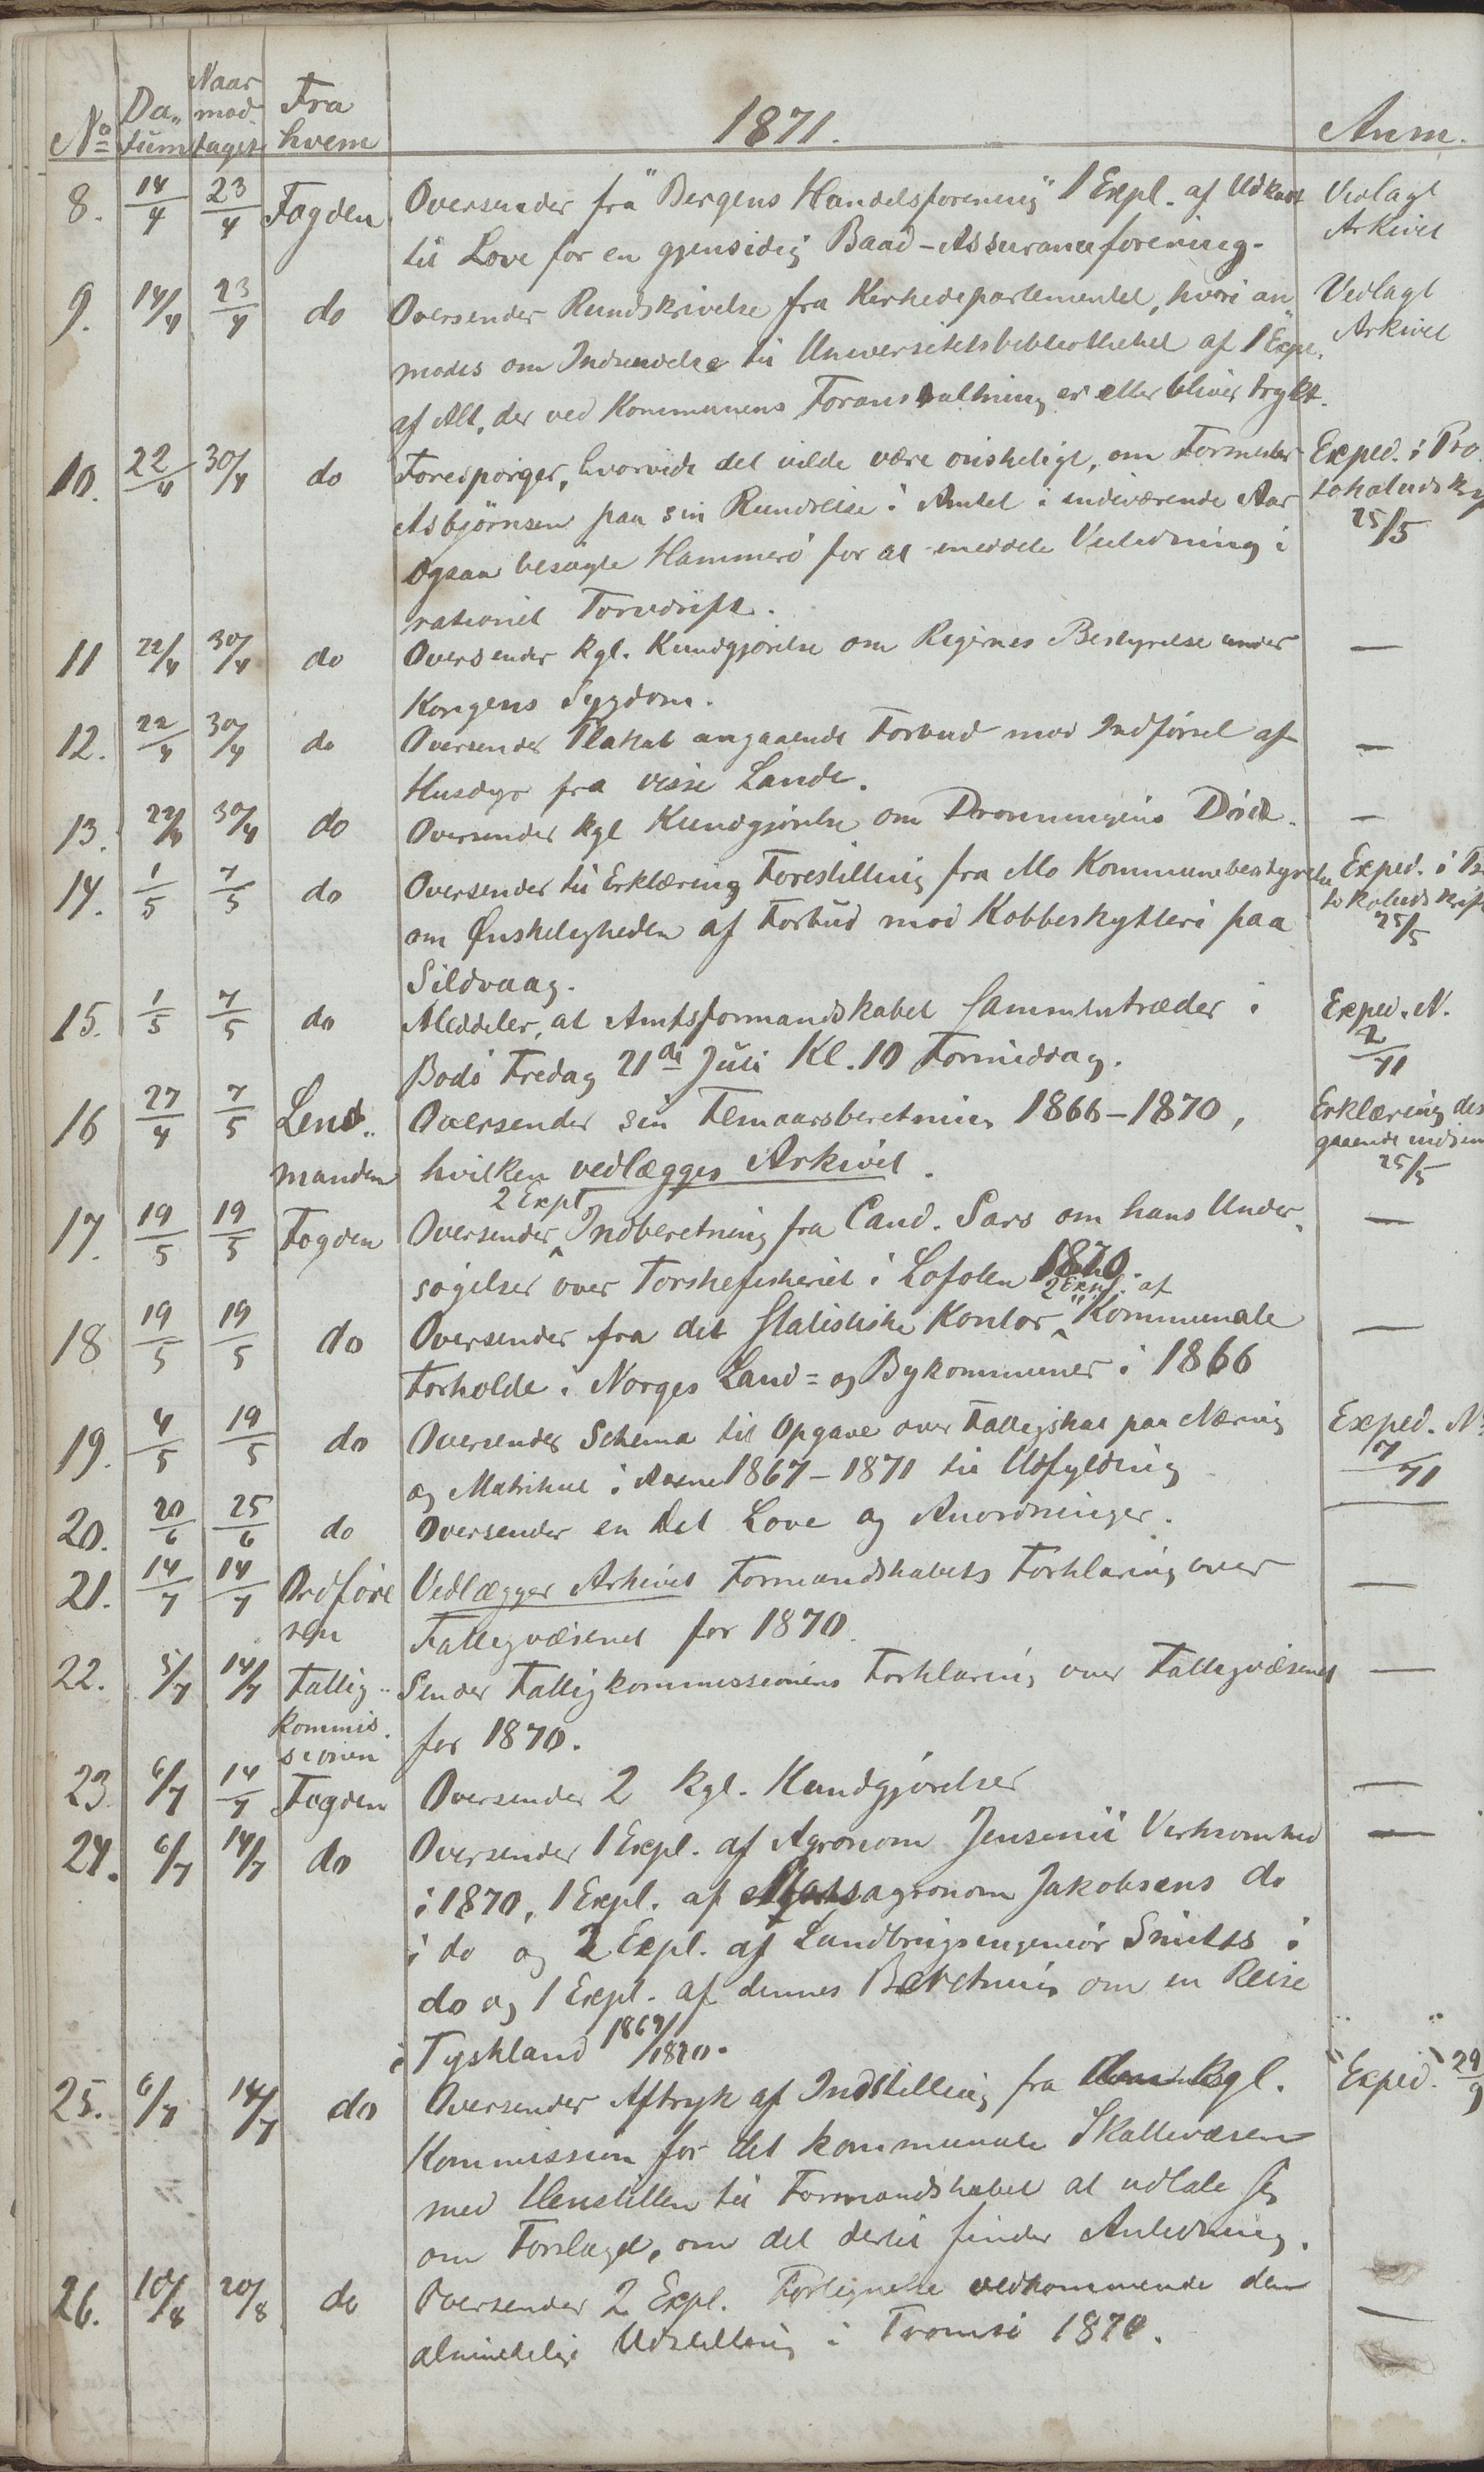 Naar
Da- mod- Fra
No tum tages hvem 1871. Anm.
8. 14/4 23/4 Fogden Oversender fra "Bergens Handelsforening" 1 Expl. af Udkast Vedlagt
til Love for en gjensidig Baad-Assuranceforening. Arkivet
9. 14/4 23/4 do Oversender Rundskrivelse fra Kirkedepartementet, hvori an- Vedlagt
modes om Indsendelse til Universitetsbibliotheket af 1 Expl. Arkivet
af Alt, der ved Kommunens Foranstaltning er eller bliver trykt.
10. 22/4 30/4 do Forespørger, hvorvidt det vilde være ønskeligt, om Torvmester Exped. i Pro-
Asbjørnsen paa sin Rundreise i Amtet i indeværende Aar tokoludskr
ogsaa besøgte Hammerø for at meddele Veiledning i 25/5
rationel Torvdrift.
11 22/4 30/4 do Oversender kgl. Kundgjørelse om Rigernes Bestyrelse under —
Kongens Sygdom.
12. 22/4 30/4 do Oversender Plakat angaaende Forbud mod Indførsel af —
Husdyr fra visse Lande.
13. 22/4 30/4 do Oversender kgl Kundgjørelse om Dronningens Død. —
14. 1/5 7/5 do Oversender til Erklæring Forestilling fra Mo Kommunebestyrelse Exped. i Pro
om Ønskeligheden af Forbud mod Kobbeskytteri paa tokoludskrift
Sildvaag. 25/5
15. 1/5 7/5 do Meddeler, at Amtsformandskabet sammentræder i Exped. N.
Bodø Fredag 21de Juli Kl. 10 Formiddag. 2/71
16 27/4 7/5 Lens- Oversender sin Femaarsberetning 1866-1870, Erklæring des
manden hvilken vedlægges Arkivet. gaaende indsen
25/5
2 Expl
17. 19/5 19/5 Fogden Oversender Indberetning fra Cand. Sars om hans Under- —
søgelser over Torskefiskeriet i Lofoten 1870.
2 Expl. af
18 19/5 19/5 do Oversender fra det statistiske Kontor "Kommunale —
Forholde i Norges Land= og Bykommuner i 1866
19. 4/5 19/5 do Oversender Schema til Opgave over Fattigskat paa Næring Exped. No
og Matrikul i Aarene 1867-1871 til Udfylding 7/71
20. 20/6 25/6 do Oversender en Del Love og Anordninger. —
21. 14/7 14/7 Ordføre Vedlægger Arkivet Formandskabets Forklaring over —
ren Fattigvæsenet for 1870.
22. 5/7 14/7 Fattig- Sender Fattigkommissionens Forklaring over Fattigvæsenet —
kommis-
sionen for 1870.
23. 6/7 14/7 Fogden Oversender 2 kgl. Kundgjørelser —
24. 6/7 14/7 do Oversender 1 Expl. af Agronom Jensenii Virksomhed —
i 1870, 1 Expl. af agronom Jakobsens do
i do og 2 Expl. af Landbrugsingeniør Smitts i
do og 1 Expl. af dennes Beretning om en Reise
i Tyskland 1869/1870.
25. 6/7 14/7 do Oversender Aftryk af Indstilling fra den kgl. Exped. 29/9
Kommission for det kommunale Skattevæsen
med Henstillen til Formandskabet at udtale sig
om Forslaget, om det dertil finder Anledning.
26. 10/8 20/8 do Oversender 2 Expl. Fortegnelse vedkommende den —
almindelige Udstilling i Tromsø 1870.